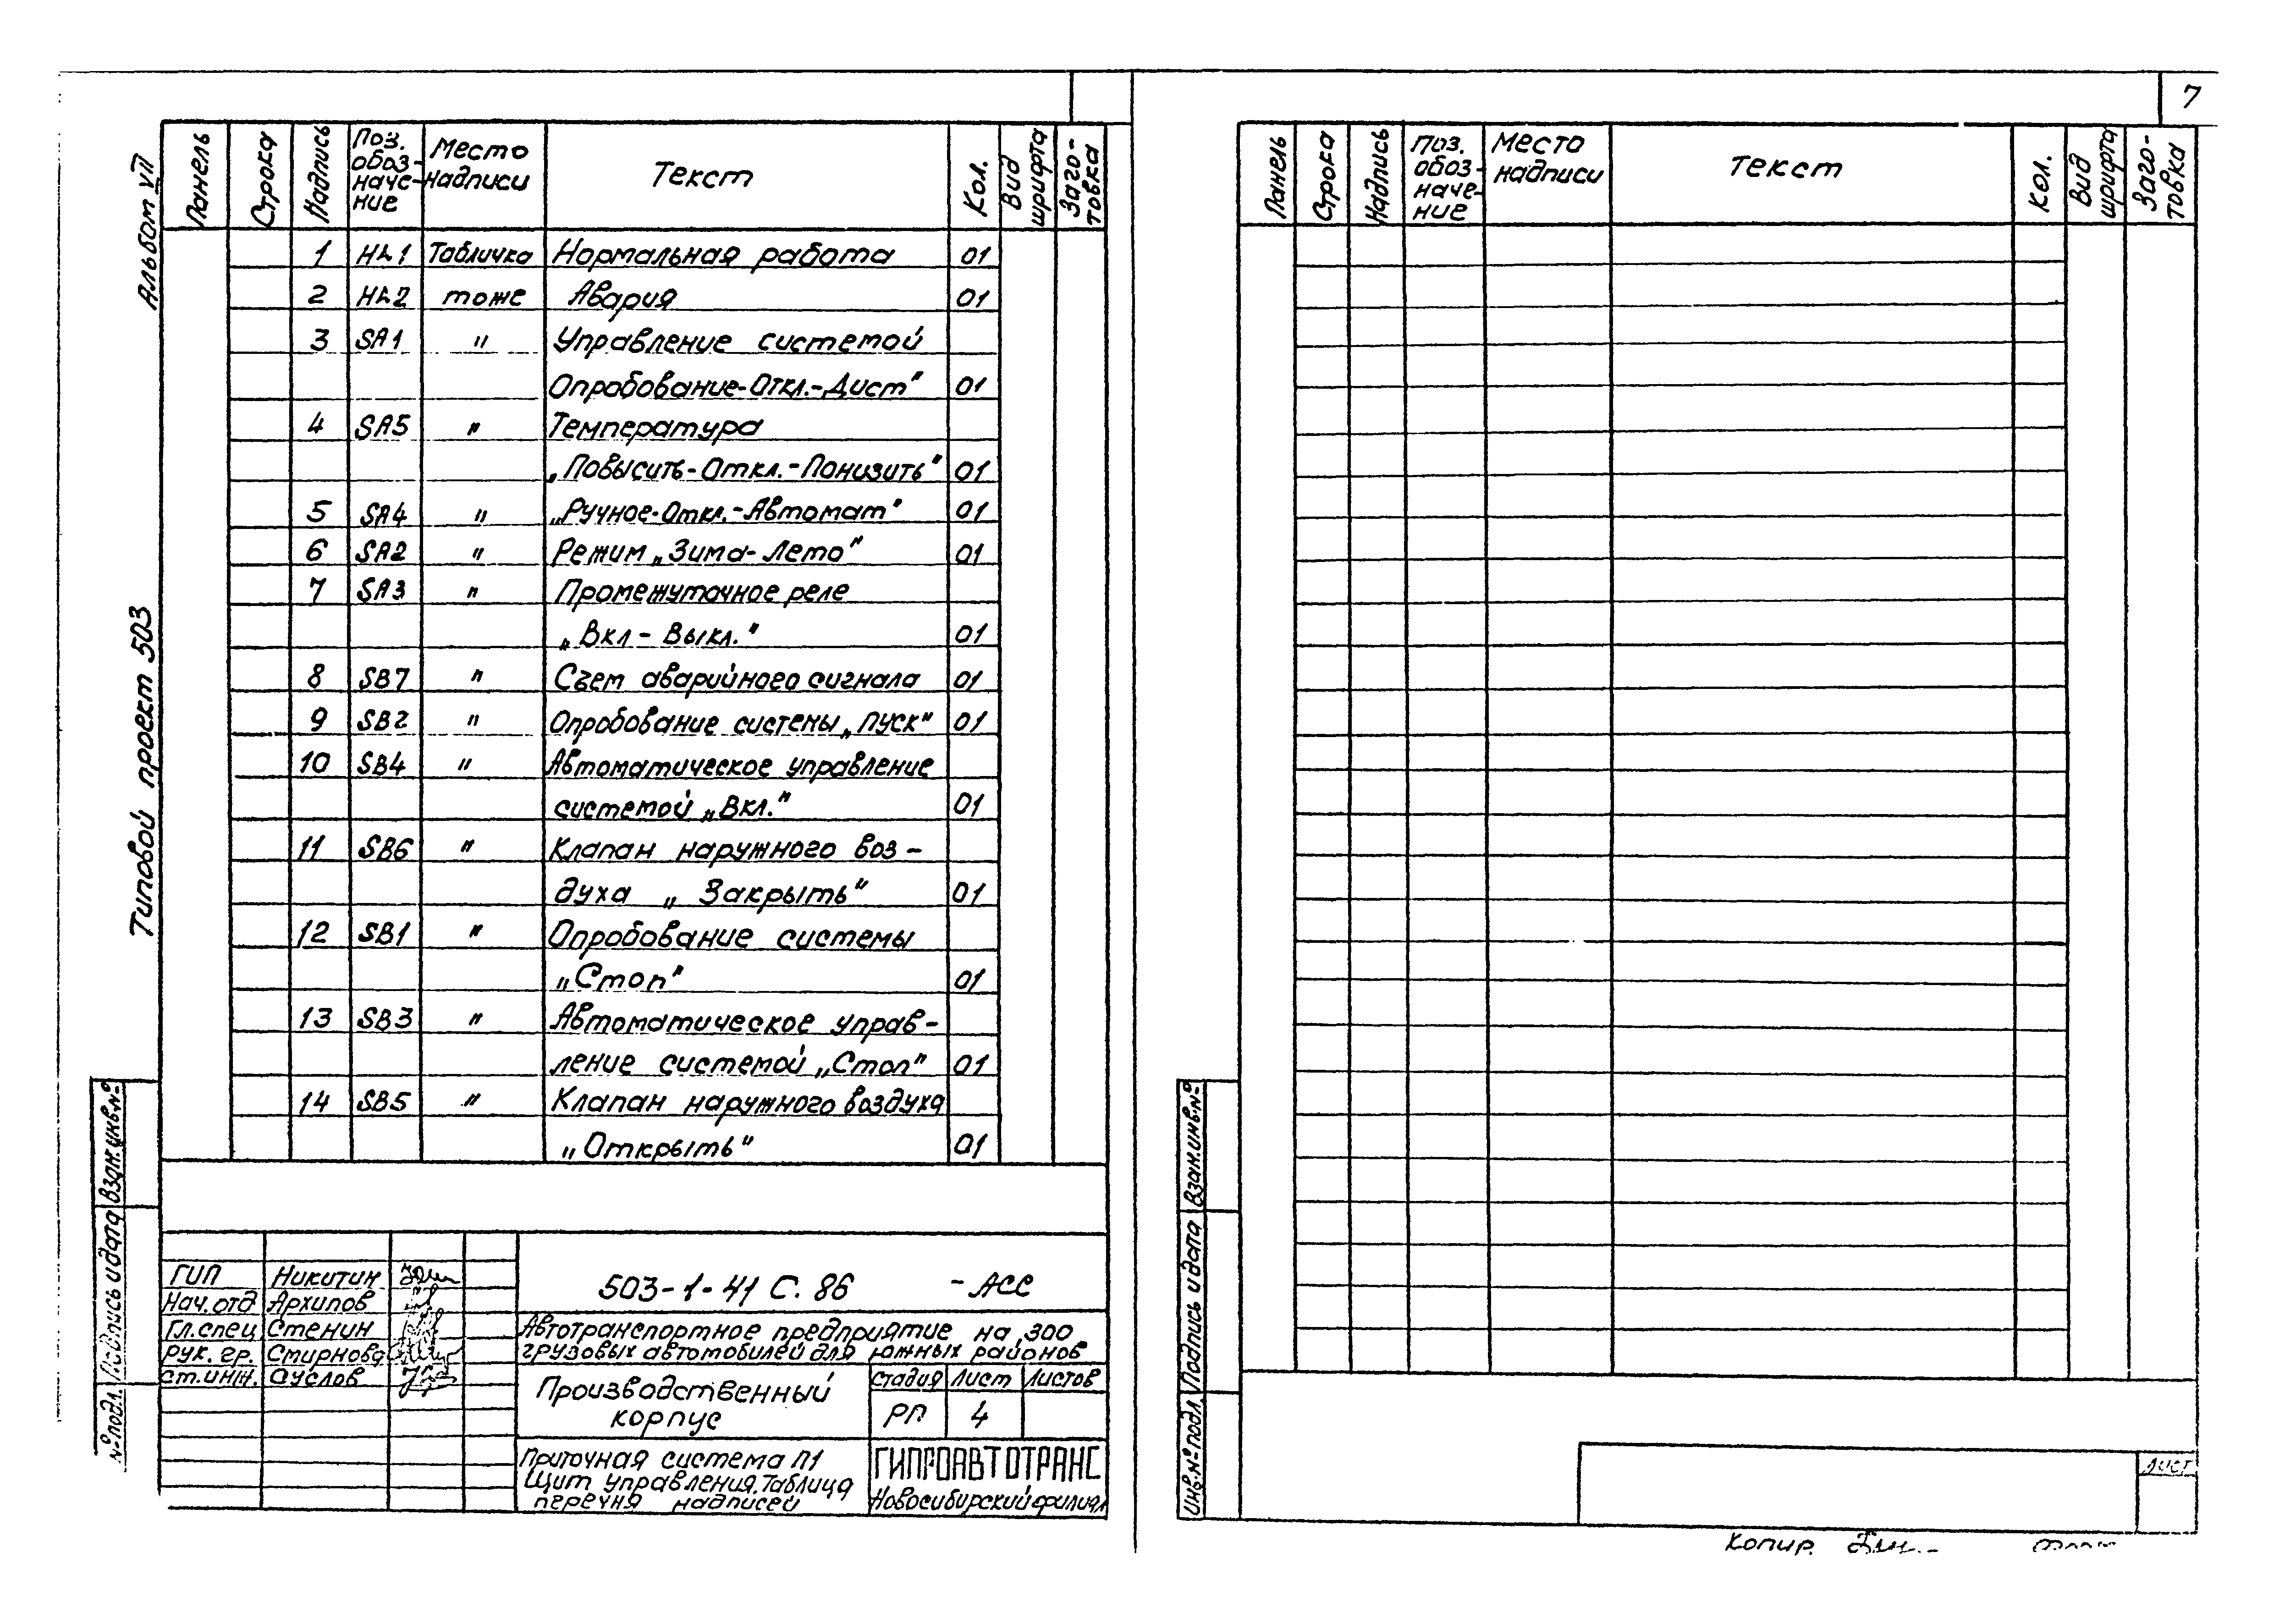 7
Альбом VII
Типовой проект 503
Панель Строка Надпись Поз. обоз-наче-ние Место надписи Текст Кол. Вид шрифта Заго-товка
1 HL1 Табличка Нормальная работа 01
2 HL2 тоже Авария 01
3 SA1 " Управление системой
Опробование-Откл.-Дист" 01
4 SA5 " Температура
„Повысить-Откл.-Понизить" 01
5 SA4 " „Ручное-Откл.-Автомат" 01
6 SA2 " Режим „Зима-Лето" 01
7 SA3 " Промежуточное реле
„Вкл-Выкл." 01
8 SB7 " Съем аварийного сигнала 01
9 SB2 " Опробование системы „пуск" 01
10 SB4 " Автоматическое управление
системой „Вкл." 01
11 SB6 " Клапан наружного воз-
духа „Закрыть" 01
12 SB1 " Опробование системы
„Стоп" 01
13 SB3 " Автоматическое управ-
ление системой „Стоп" 01
14 SB5 " Клапан наружного воздуха
„Открыть" 01
Взам.инв.№
Подпись и дата
№ подл.
ГИП Никитин
Нач.отд Архипов
Гл.спец Стенин
рук. гр. Смирнова
ст.инж. Суслов
503-1-41 С. 86 - АСС
Автотранспортное предприятие на 300
грузовых автомобилей для южных районов
Производственный
корпус
Стадия Лист Листов
РП 4
Приточная система П1
Щит управления. Таблица
перечня надписей
ГИПРОАВТОТРАНС
Новосибирский филиал
Панель Строка Надпись Поз. обоз-наче-ние Место надписи Текст Кол. Вид шрифта Заго-товка
Взам.инв.№
Подпись и дата
Инв.№ подл.
Лист
Копир.